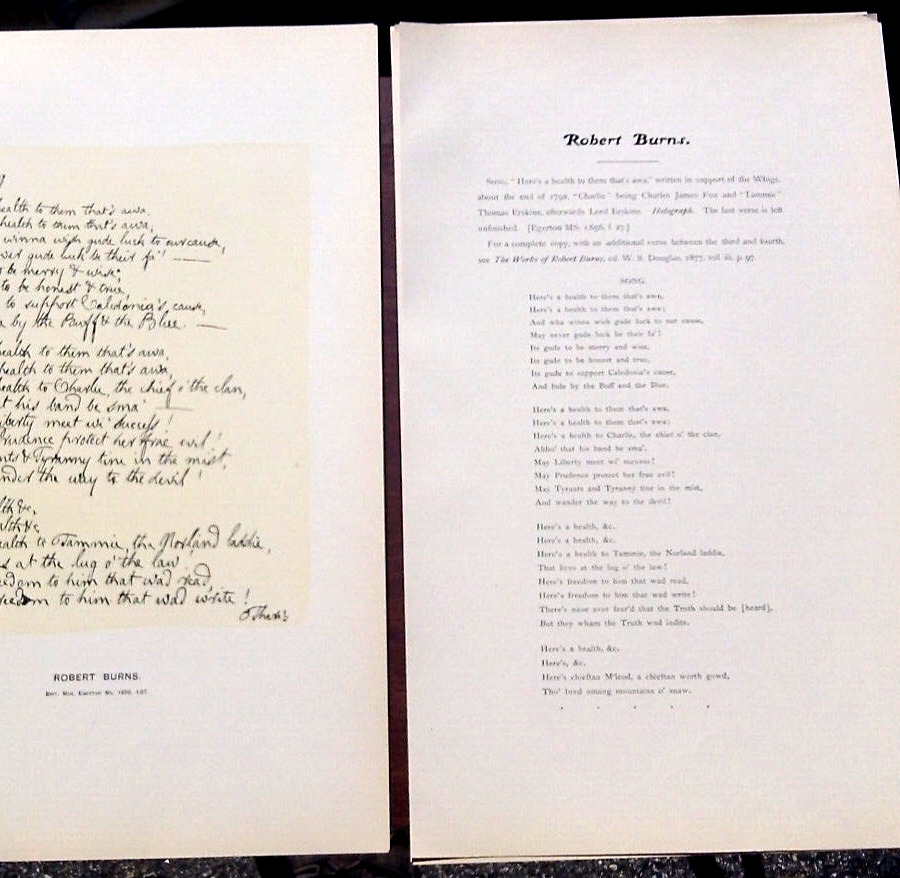 ealth to them that's awa,
health to them that's awa,
winna wish gude luck to our cause,
war gude luck be their fa'!
be merry & wise,
to be honest & true,
to support Caledonia's cause,
by the Buff & the Blue.
health to them that's awa,
health to them that's awa,
ealth to Charlie, the chief o' the clan,
t his band be sma'
iberty meet wi' success!
Prudence protect her frae evil!
nts & Tyranny tine in the mist,
nder the way to the devil!
lth &c.
lth &c
ealth to Tammie, the Norland laddie,
s at the lug o' the law
eedom to him that wad read,
reedom to him that wad write!
ROBERT BURNS.
Brit. Mus. Egerton MS. 1656, f. 27.
Robert Burns.
Song, "Here's a health to them that's awa," written in support of the Whigs,
about the end of 1792, "Charlie" being Charles James Fox and "Tammie"
Thomas Erskine, afterwards Lord Erskine. Holograph. The last verse is left
unfinished. [Egerton MS. 1656, f. 27.]
For a complete copy, with an additional verse between the third and fourth,
see The Works of Robert Burns, ed. W. S. Douglas, 1877, vol. iii. p. 97.
SONG.
Here's a health to them that's awa,
Here's a health to them that's awa;
And wha winna wish gude luck to our cause,
May never gude luck be their fa'!
Its gude to be merry and wise,
Its gude to be honest and true,
Its gude to support Caledonia's cause,
And bide by the Buff and the Blue.
Here's a health to them that's awa,
Here's a health to them that's awa;
Here's a health to Charlie, the chief o' the clan,
Altho' that his band be sma'.
May Liberty meet wi' success!
May Prudence protect her frae evil!
May Tyrants and Tyranny tine in the mist,
And wander the way to the devil!
Here's a health, &c.
Here's a health, &c.
Here's a health to Tammie, the Norland laddie,
That lives at the lug o' the law!
Here's freedom to him that wad read,
Here's freedom to him that wad write!
There's nane ever fear'd that the Truth should be [heard],
But they wham the Truth wad indite.
Here's a health, &c.
Here's, &c.
Here's chieftan Mᶜleod, a chieftan worth gowd,
Tho' bred among mountains o' snaw.